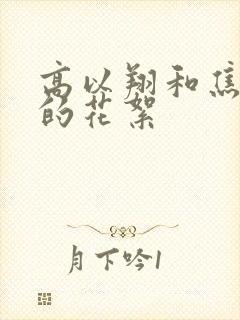 高以翔和焦
的花絮
月下吟1